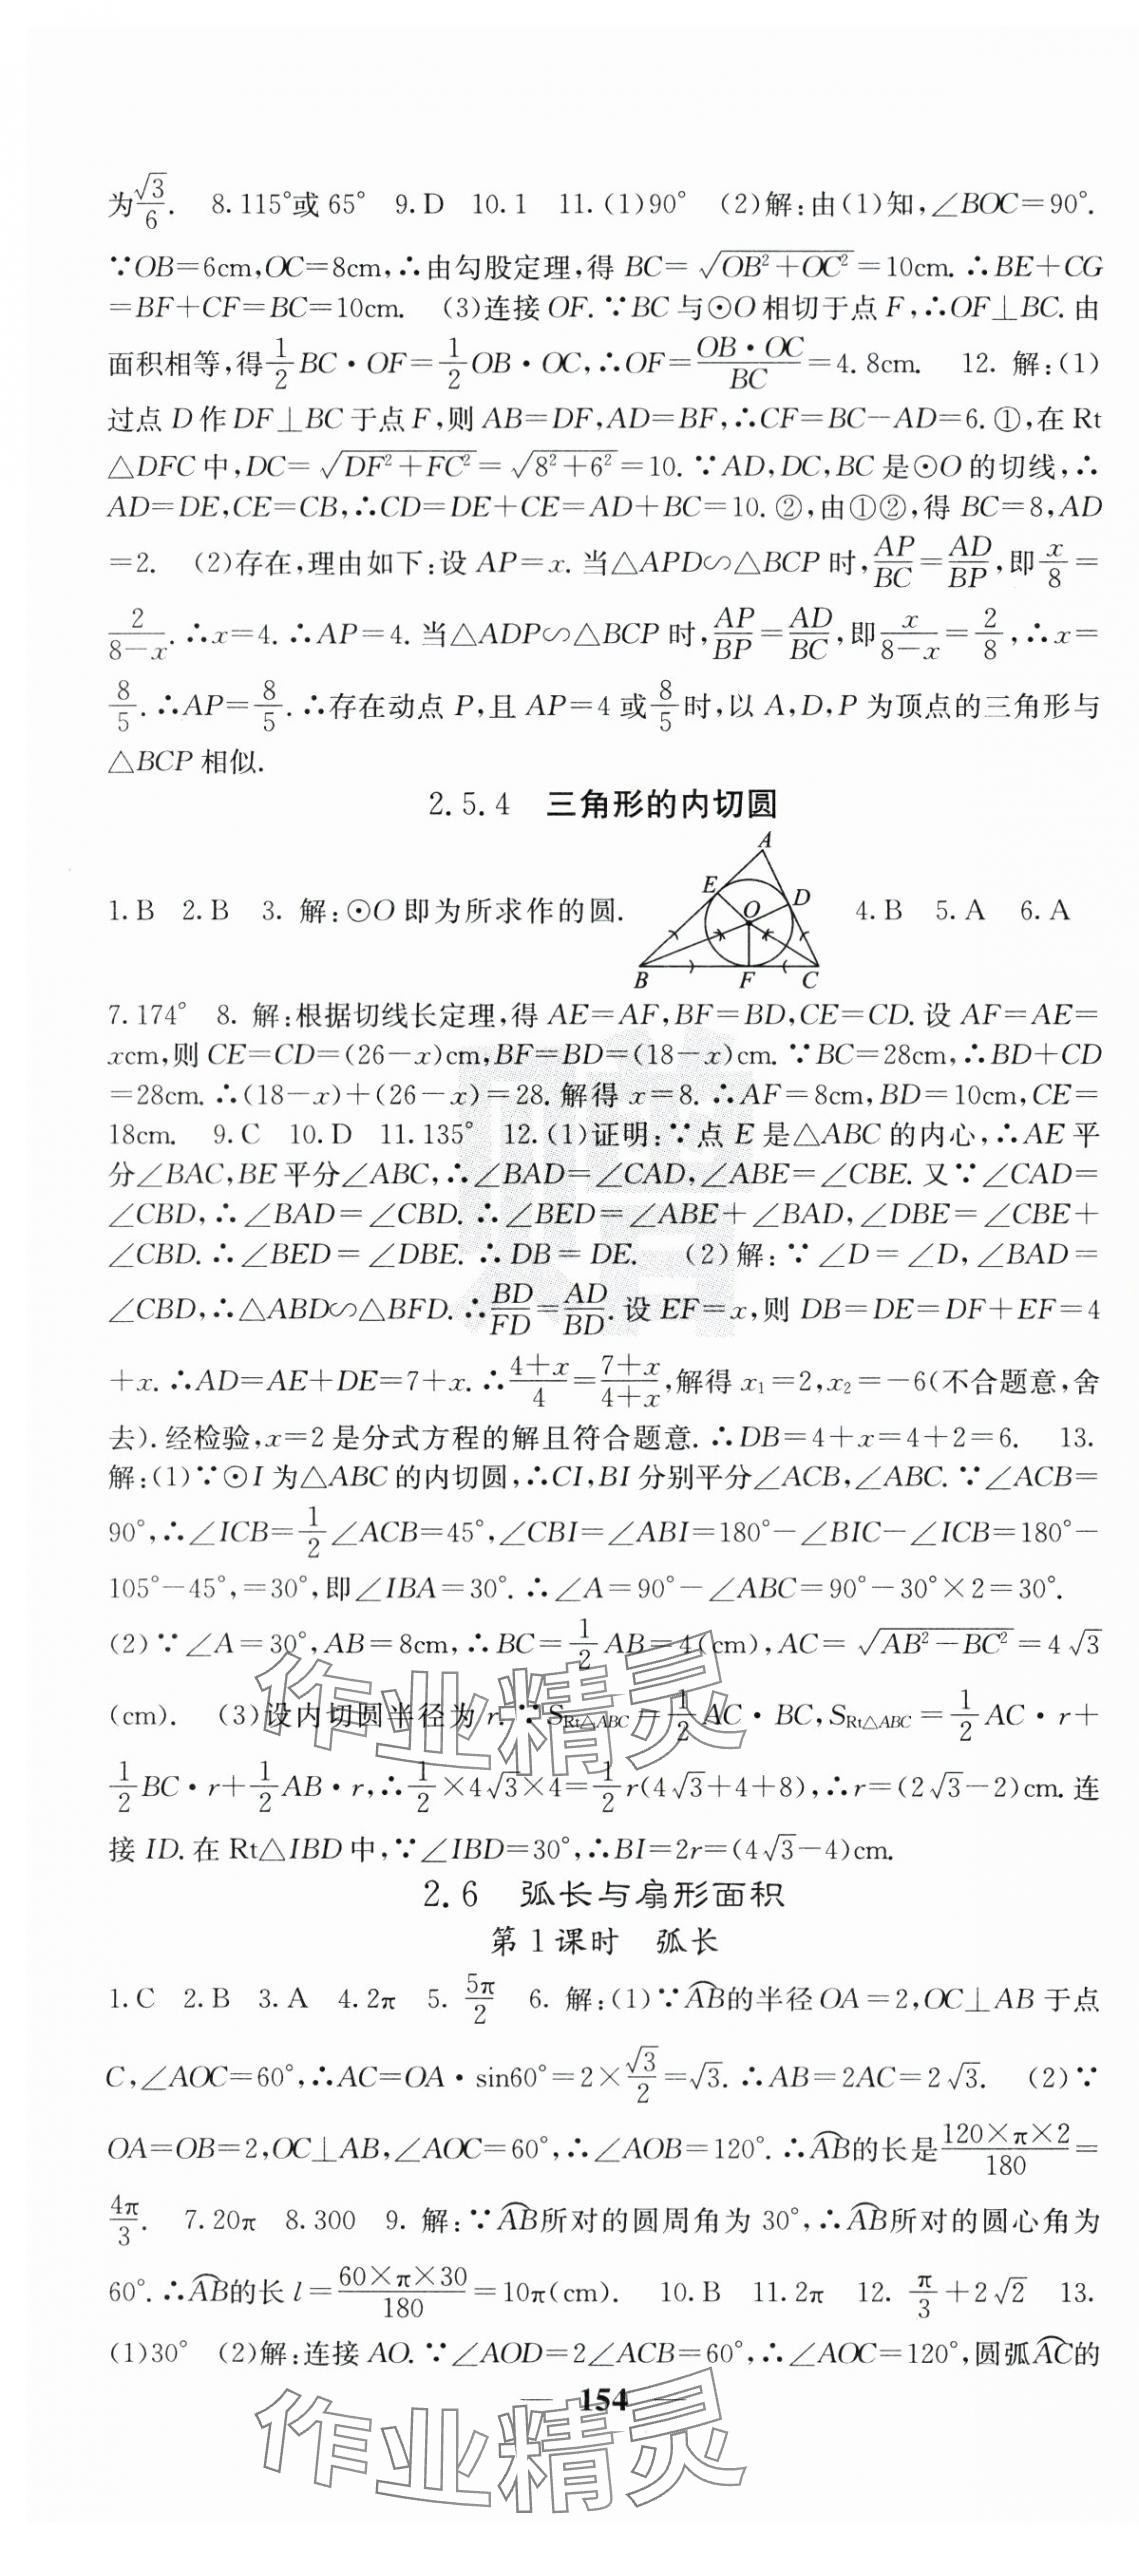 为√3/6. 8.115°或65° 9.D 10.1 11.(1)90° (2)解:由(1)知,∠BOC=90°.
∵OB=6cm,OC=8cm,∴由勾股定理,得 BC=√(OB²+OC²)=10cm.∴BE+CG
=BF+CF=BC=10cm. (3)连接OF.∵BC与⊙O相切于点F,∴OF⊥BC.由
面积相等,得1/2BC·OF=1/2OB·OC,∴OF=OB·OC/BC=4.8cm. 12. 解:(1)
过点D作DF⊥BC于点F,则AB=DF,AD=BF,∴CF=BC-AD=6.①,在Rt
△DFC中,DC=√(DF²+FC²)=√(8²+6²)=10.∵AD,DC,BC是⊙O的切线,∴
AD=DE,CE=CB,∴CD=DE+CE=AD+BC=10.②,由①②,得BC=8,AD
=2. (2)存在,理由如下:设AP=x.当△APD∽△BCP时,AP/BC=AD/BP,即x/8=
2/(8-x).∴x=4.∴AP=4.当△ADP∽△BCP时,AP/BP=AD/BC,即x/(8-x)=2/8,∴x=
8/5.∴AP=8/5.∴存在动点P,且AP=4或8/5时,以A,D,P为顶点的三角形与
△BCP相似.
2.5.4 三角形的内切圆
1.B 2.B 3. 解:⊙O即为所求作的圆. A E D O B F C 4.B 5.A 6.A
7.174° 8. 解:根据切线长定理,得AE=AF,BF=BD,CE=CD.设AF=AE=
xcm,则CE=CD=(26-x)cm,BF=BD=(18-x)cm.∵BC=28cm,∴BD+CD
=28cm.∴(18-x)+(26-x)=28.解得x=8.∴AF=8cm,BD=10cm,CE=
18cm. 9.C 10.D 11.135° 12.(1)证明:∵点E是△ABC的内心,∴AE平
分∠BAC,BE平分∠ABC,∴∠BAD=∠CAD,∠ABE=∠CBE.又∵∠CAD=
∠CBD,∴∠BAD=∠CBD.∴∠BED=∠ABE+∠BAD,∠DBE=∠CBE+
∠CBD.∴∠BED=∠DBE.∴DB=DE. (2)解:∵∠D=∠D,∠BAD=
∠CBD,∴△ABD∽△BFD.∴BD/FD=AD/BD.设EF=x,则DB=DE=DF+EF=4
+x.∴AD=AE+DE=7+x.∴(4+x)/4=(7+x)/(4+x),解得x₁=2,x₂=-6(不合题意,舍
去).经检验,x=2是分式方程的解且符合题意.∴DB=4+x=4+2=6. 13.
解:(1)∵⊙I为△ABC的内切圆,∴CI,BI分别平分∠ACB,∠ABC.∵∠ACB=
90°,∴∠ICB=1/2∠ACB=45°,∠CBI=∠ABI=180°-∠BIC-∠ICB=180°-
105°-45°,=30°,即∠IBA=30°.∴∠A=90°-∠ABC=90°-30°×2=30°.
(2)∵∠A=30°,AB=8cm,∴BC=1/2AB=4(cm),AC=√(AB²-BC²)=4√3
(cm). (3)设内切圆半径为r.∵S Rt△ABC=1/2AC·BC,S Rt△ABC=1/2AC·r+
1/2BC·r+1/2AB·r,∴1/2×4√3×4=1/2r(4√3+4+8),∴r=(2√3-2)cm.连
接ID.在Rt△IBD中,∵∠IBD=30°,∴BI=2r=(4√3-4)cm.
2.6 弧长与扇形面积
第1课时 弧长
1.C 2.B 3.A 4.2π 5. 5π/2 6. 解:(1)∵⌒AB的半径OA=2,OC⊥AB于点
C,∠AOC=60°,∴AC=OA·sin60°=2×√3/2=√3.∴AB=2AC=2√3. (2)∵
OA=OB=2,OC⊥AB,∠AOC=60°,∴∠AOB=120°.∴⌒AB的长是120×π×2/180=
4π/3. 7.20π 8.300 9. 解:∵⌒AB所对的圆周角为30°,∴⌒AB所对的圆心角为
60°.∴⌒AB的长l=60×π×30/180=10π(cm). 10.B 11.2π 12. π/3+2√2 13.
(1)30° (2)解:连接AO.∵∠AOD=2∠ACB=60°,∴∠AOC=120°,圆弧⌒AC的
154
作业精灵
作业精灵